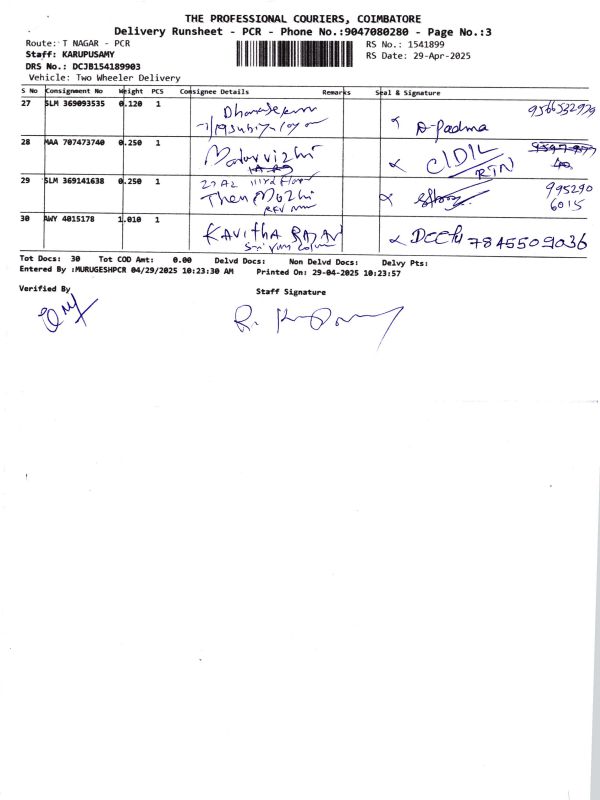 THE PROFESSIONAL COURIERS, COIMBATORE
Delivery Runsheet - PCR - Phone No.:9047080280 - Page No.:3
Route: T NAGAR - PCR
RS No.: 1541899
Staff: KARUPUSAMY
RS Date: 29-Apr-2025
DRS No.: DCJB154189903
Vehicle: Two Wheeler Delivery
S No Consignment No Weight PCS Consignee Details Remarks Seal & Signature
27 SLM 369093535 0.120 1
A-Padma
28 MAA 707473740 0.250 1
RTN
29 SLM 369141638 0.250 1 Then Mozhi
995290
6015
30 AWY 4015178 1.010 1 Kavitha
7845509036
Tot Docs: 30 Tot COD Amt: 0.00 Delvd Docs: Non Delvd Docs: Delvy Pts:
Entered By :MURUGESHPCR 04/29/2025 10:23:30 AM Printed On: 29-04-2025 10:23:57
Verified By
Staff Signature